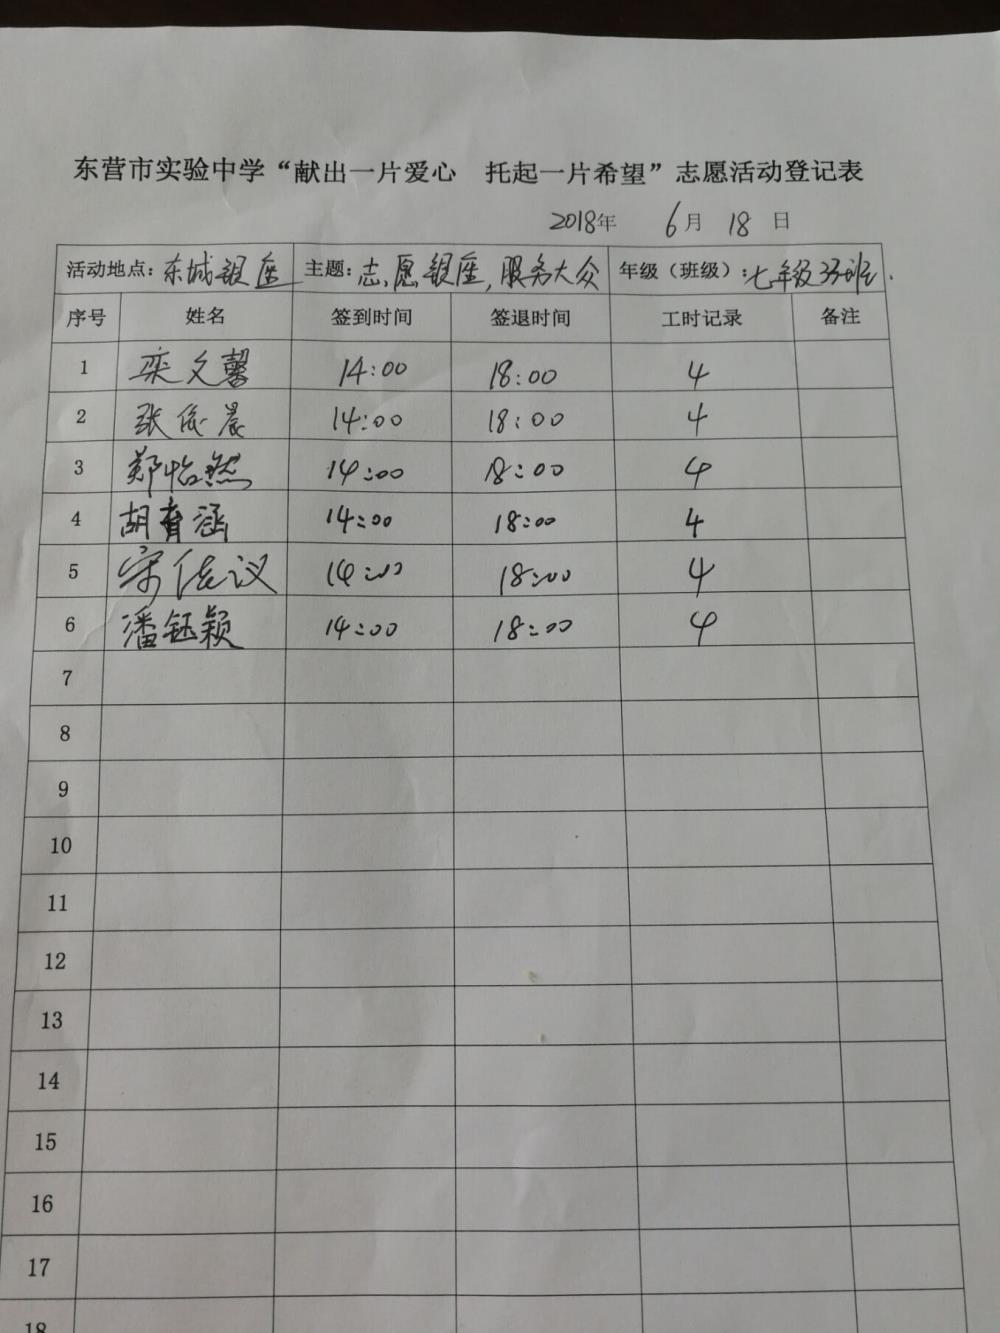 东营市实验中学“献出一片爱心 托起一片希望”志愿活动登记表
2018年 6月 18日
活动地点:东城银座 主题:志愿银座,服务大众 年级(班级):七年级33班.
序号 姓名 签到时间 签退时间 工时记录 备注
1 栾文馨 14:00 18:00 4
2 张依晨 14:00 18:00 4
3 郑怡然 14:00 18:00 4
4 胡育涵 14:00 18:00 4
5 宋佳议 14:00 18:00 4
6 潘钰颖 14:00 18:00 4
7
8
9
10
11
12
13
14
15
16
17
18